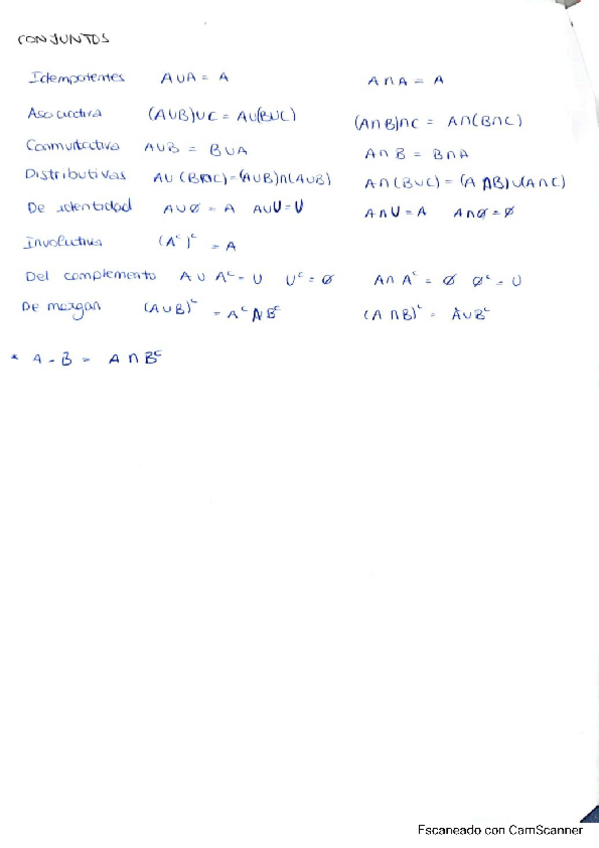 CONJUNTOS
Idempotentes A∪A = A A∩A = A
Asociativa (A∪B)∪C = A∪(B∪C) (A∩B)∩C = A∩(B∩C)
Conmutativa A∪B = B∪A A∩B = B∩A
Distributivas A∪(B∩C)=(A∪B)∩(A∪B) A∩(B∪C) = (A∩B)∪(A∩C)
De identidad A∪∅ = A A∪U=U A∩U=A A∩∅=∅
Involutiva (Aᶜ)ᶜ = A
Del complemento A∪Aᶜ=U Uᶜ=∅ A∩Aᶜ=∅ ∅ᶜ=U
De morgan (A∪B)ᶜ = Aᶜ∩Bᶜ (A∩B)ᶜ = A∪Bᶜ
* A-B = A∩Bᶜ
Escaneado con CamScanner